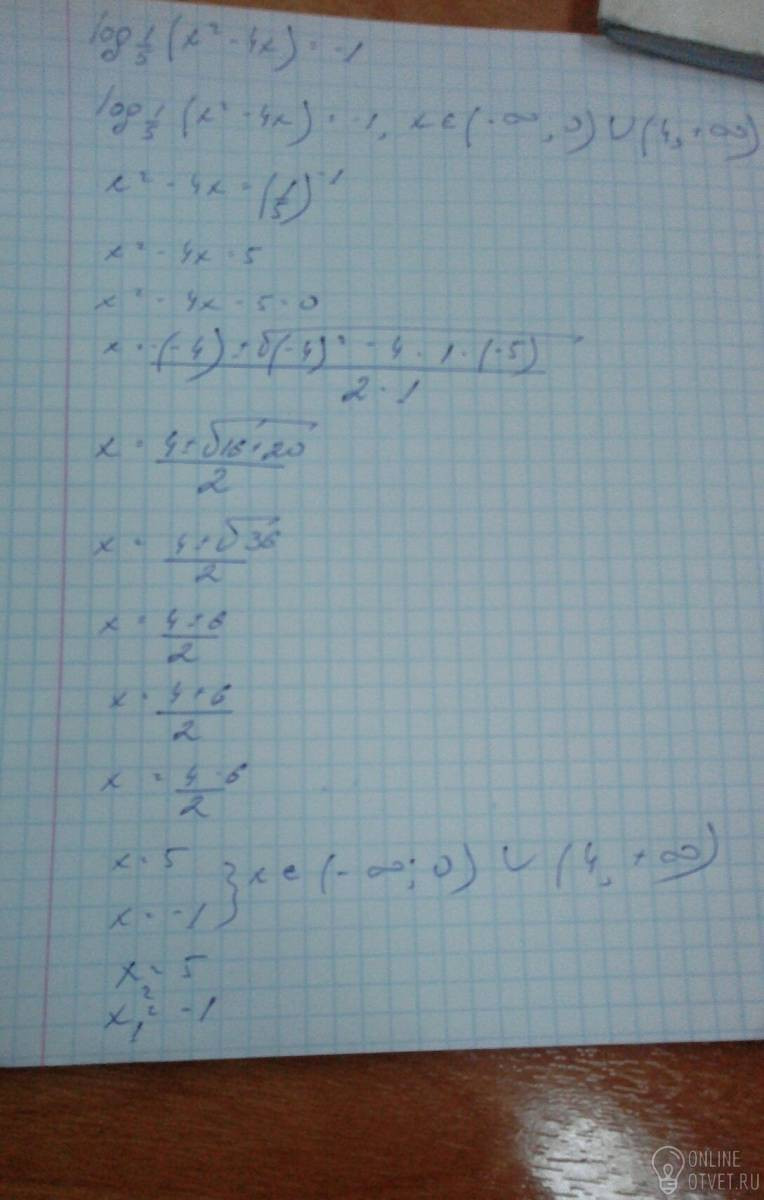 log 1/5 (x² - 4x) = -1
log 1/5 (x² - 4x) = -1, x ∈ (-∞, 0) ∪ (4, +∞)
x² - 4x = (1/5)⁻¹
x² - 4x = 5
x² - 4x - 5 = 0
x = -(-4) ± √(-4)² - 4 · 1 · (-5) / 2 · 1
x = 4 ± √16 + 20 / 2
x = 4 ± √36 / 2
x = 4 ± 6 / 2
x = 4 + 6 / 2
x = 4 - 6 / 2
x = 5
x = -1 } x ∈ (-∞; 0) ∪ (4, +∞)
x₂ = 5
x₁ = -1
ONLINE
OTVET.RU